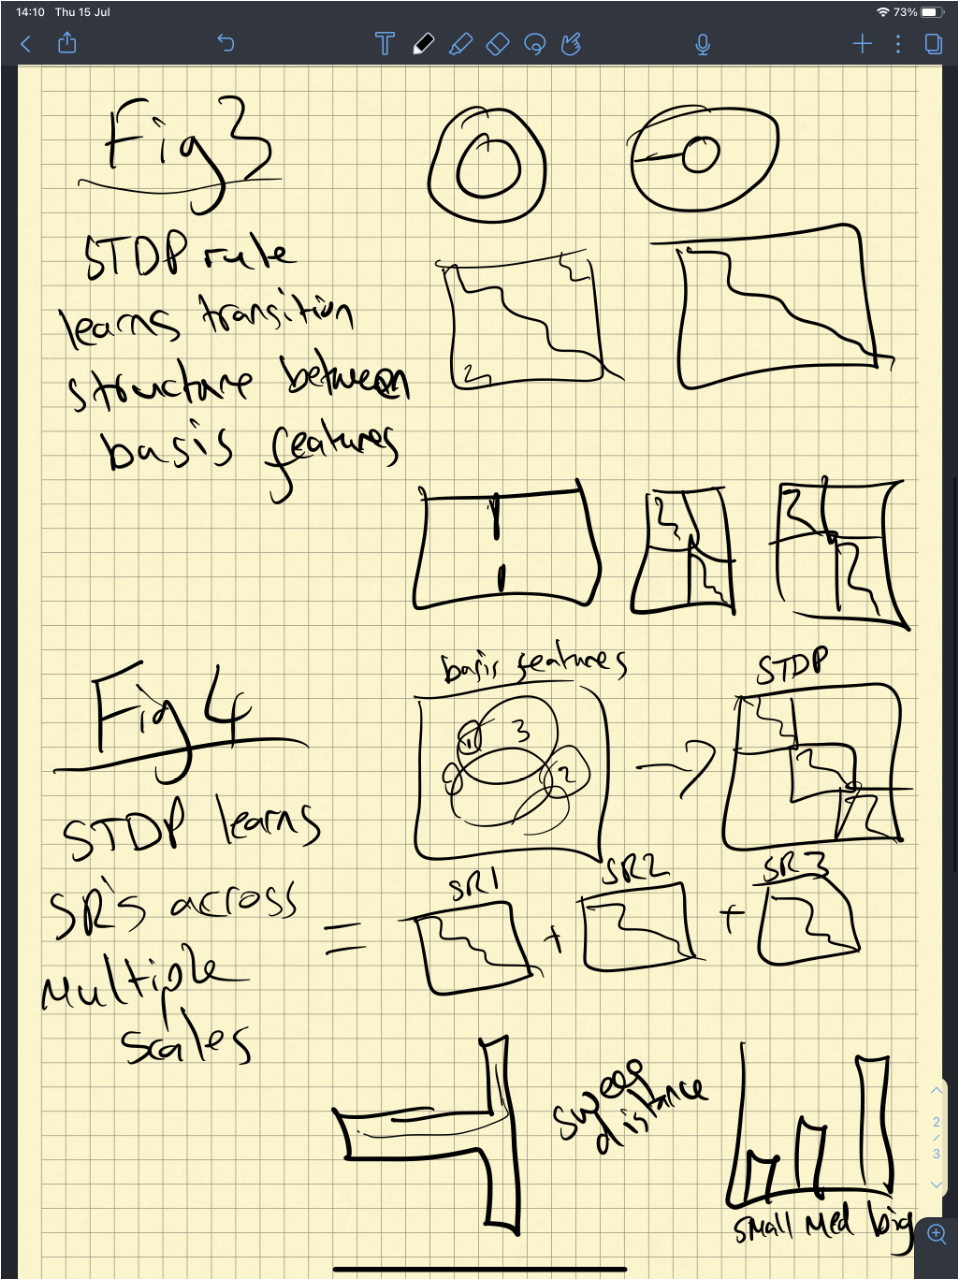 14:10 Thu 15 Jul
73%
Fig 3
STDP rule
learns transition
structure between
basis features
Fig 4
STDP learns
SR's across
Multiple
scales
basis features
1
3
2
STDP
=
SR1
+
SR2
+
SR3
sweep
distance
small Med big
2
/
3